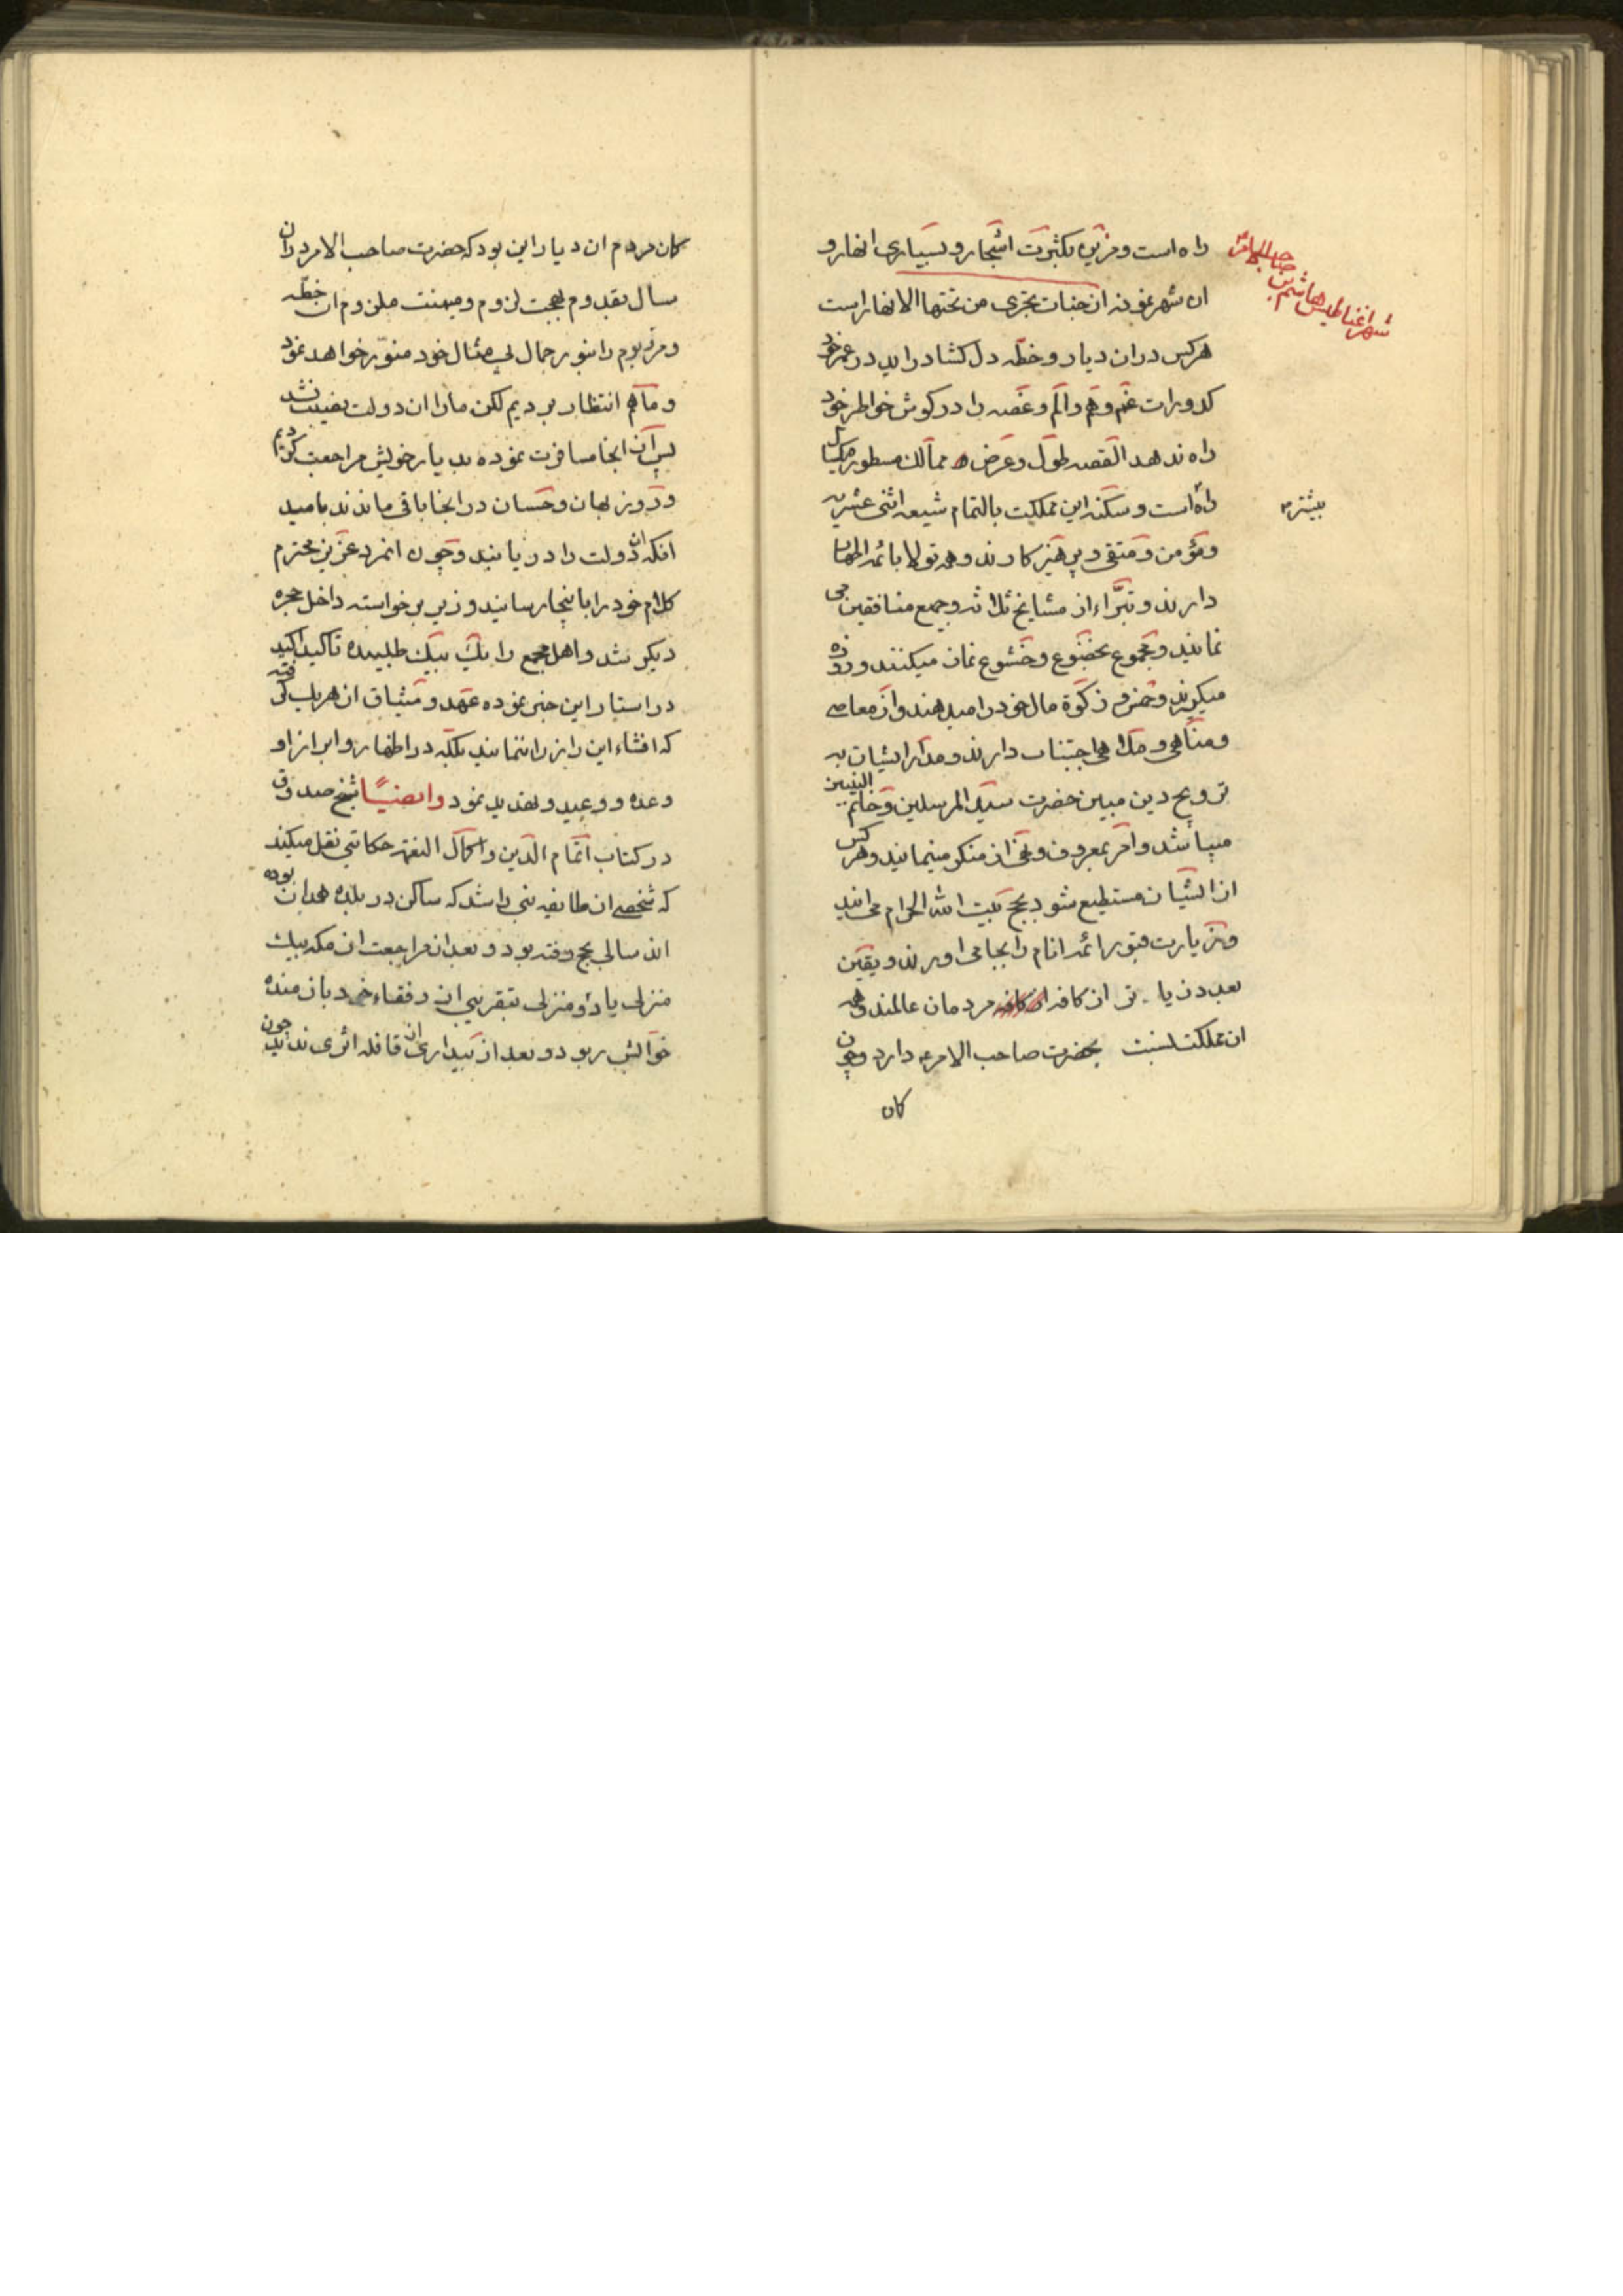 راه است و مزین بکثرت اشجار و بسیاری انهار و
ان شهر نمونه از جنات تجری من تحتها الانهار است
هرکس دران دیار و خطّه دل کشا دراید در عمر خود
کدورات غم و هم و الم و غصه را در کوش خواطر خود
راه ندهد القصه طول و عرض ممالک مسطور یکسال
راه است و سکنه این مملکت بالتمام شیعه اثنی عشریه
و مؤمن و متقی و پرهیزکارند و همه تولا بائمه اطهار
دارند و تبرّاء از مشایخ ثلاثه و جمیع منافقین می
نمایند و مجموع بخضوع و خشوع نماز میکنند و روزه
میکیرند و خمس و زکوة مال خود را میدهند و از معاصی
و مناهی و ملاهی اجتناب دارند و مدار ایشان به
ترویج دین مبین حضرت سید المرسلین و خاتم النبیین
میباشد و امر بمعروف و نهی از منکر مینمایند و هر کس
از ایشان مستطیع شود بحج بیت الله الحرام می ایند
و زیارت قبور ائمه انام را بجا می اورند و یقین
بعدد زیاد تر از کافه مردمان عالمند همه
ان مملکت نسبت بحضرت صاحب الامر ع دارد و چون
کان
شهر غناطیس هاشم بن صاحب الامر
بیشتر
کان مردم ان دیار این بود که حضرت صاحب الامر دران
سال بقدوم بهجت لزوم و میمنت ملزوم ان خطّه
و مرزبوم را بنور جمال بی مثال خود منوّر خواهد نمود
و ما هم انتظار بردیم لکن ما را ان دولت نصیب نشد
پس از انجا مسافرت نموده بدیار خویش مراجعت کردیم
و روزبهان و حسان در انجا باقی ماندند بامید
انکه ان دولت را دریابند و چون انمرد عزیز محترم
کلام خود را باینجا رسانید وزیر برخواسته داخل حجره
دیکر شد و اهل مجمع را یک بیک طلبیده تاکید اکید
در استار این خبر نموده عهد و میثاق از هریک گرفته
که افشاء این راز را ننمایند بلکه در اظهار و ابراز او
وعده و وعید و تهدید نمود وایضًا شیخ صدوق
در کتاب اتمام الدین و اکمال النعمه حکایتی نقل میکند
که شخصی از طایفه بنی راشد که ساکن در بلده همدان بوده
اند سالی بحج رفته بود و بعد از مراجعت از مکه بیک
منزلی یا دو منزلی بتقریبی از رفقاء خود باز مانده
خوابش ربود و بعد از بیداری از قافله اثری ندید چون